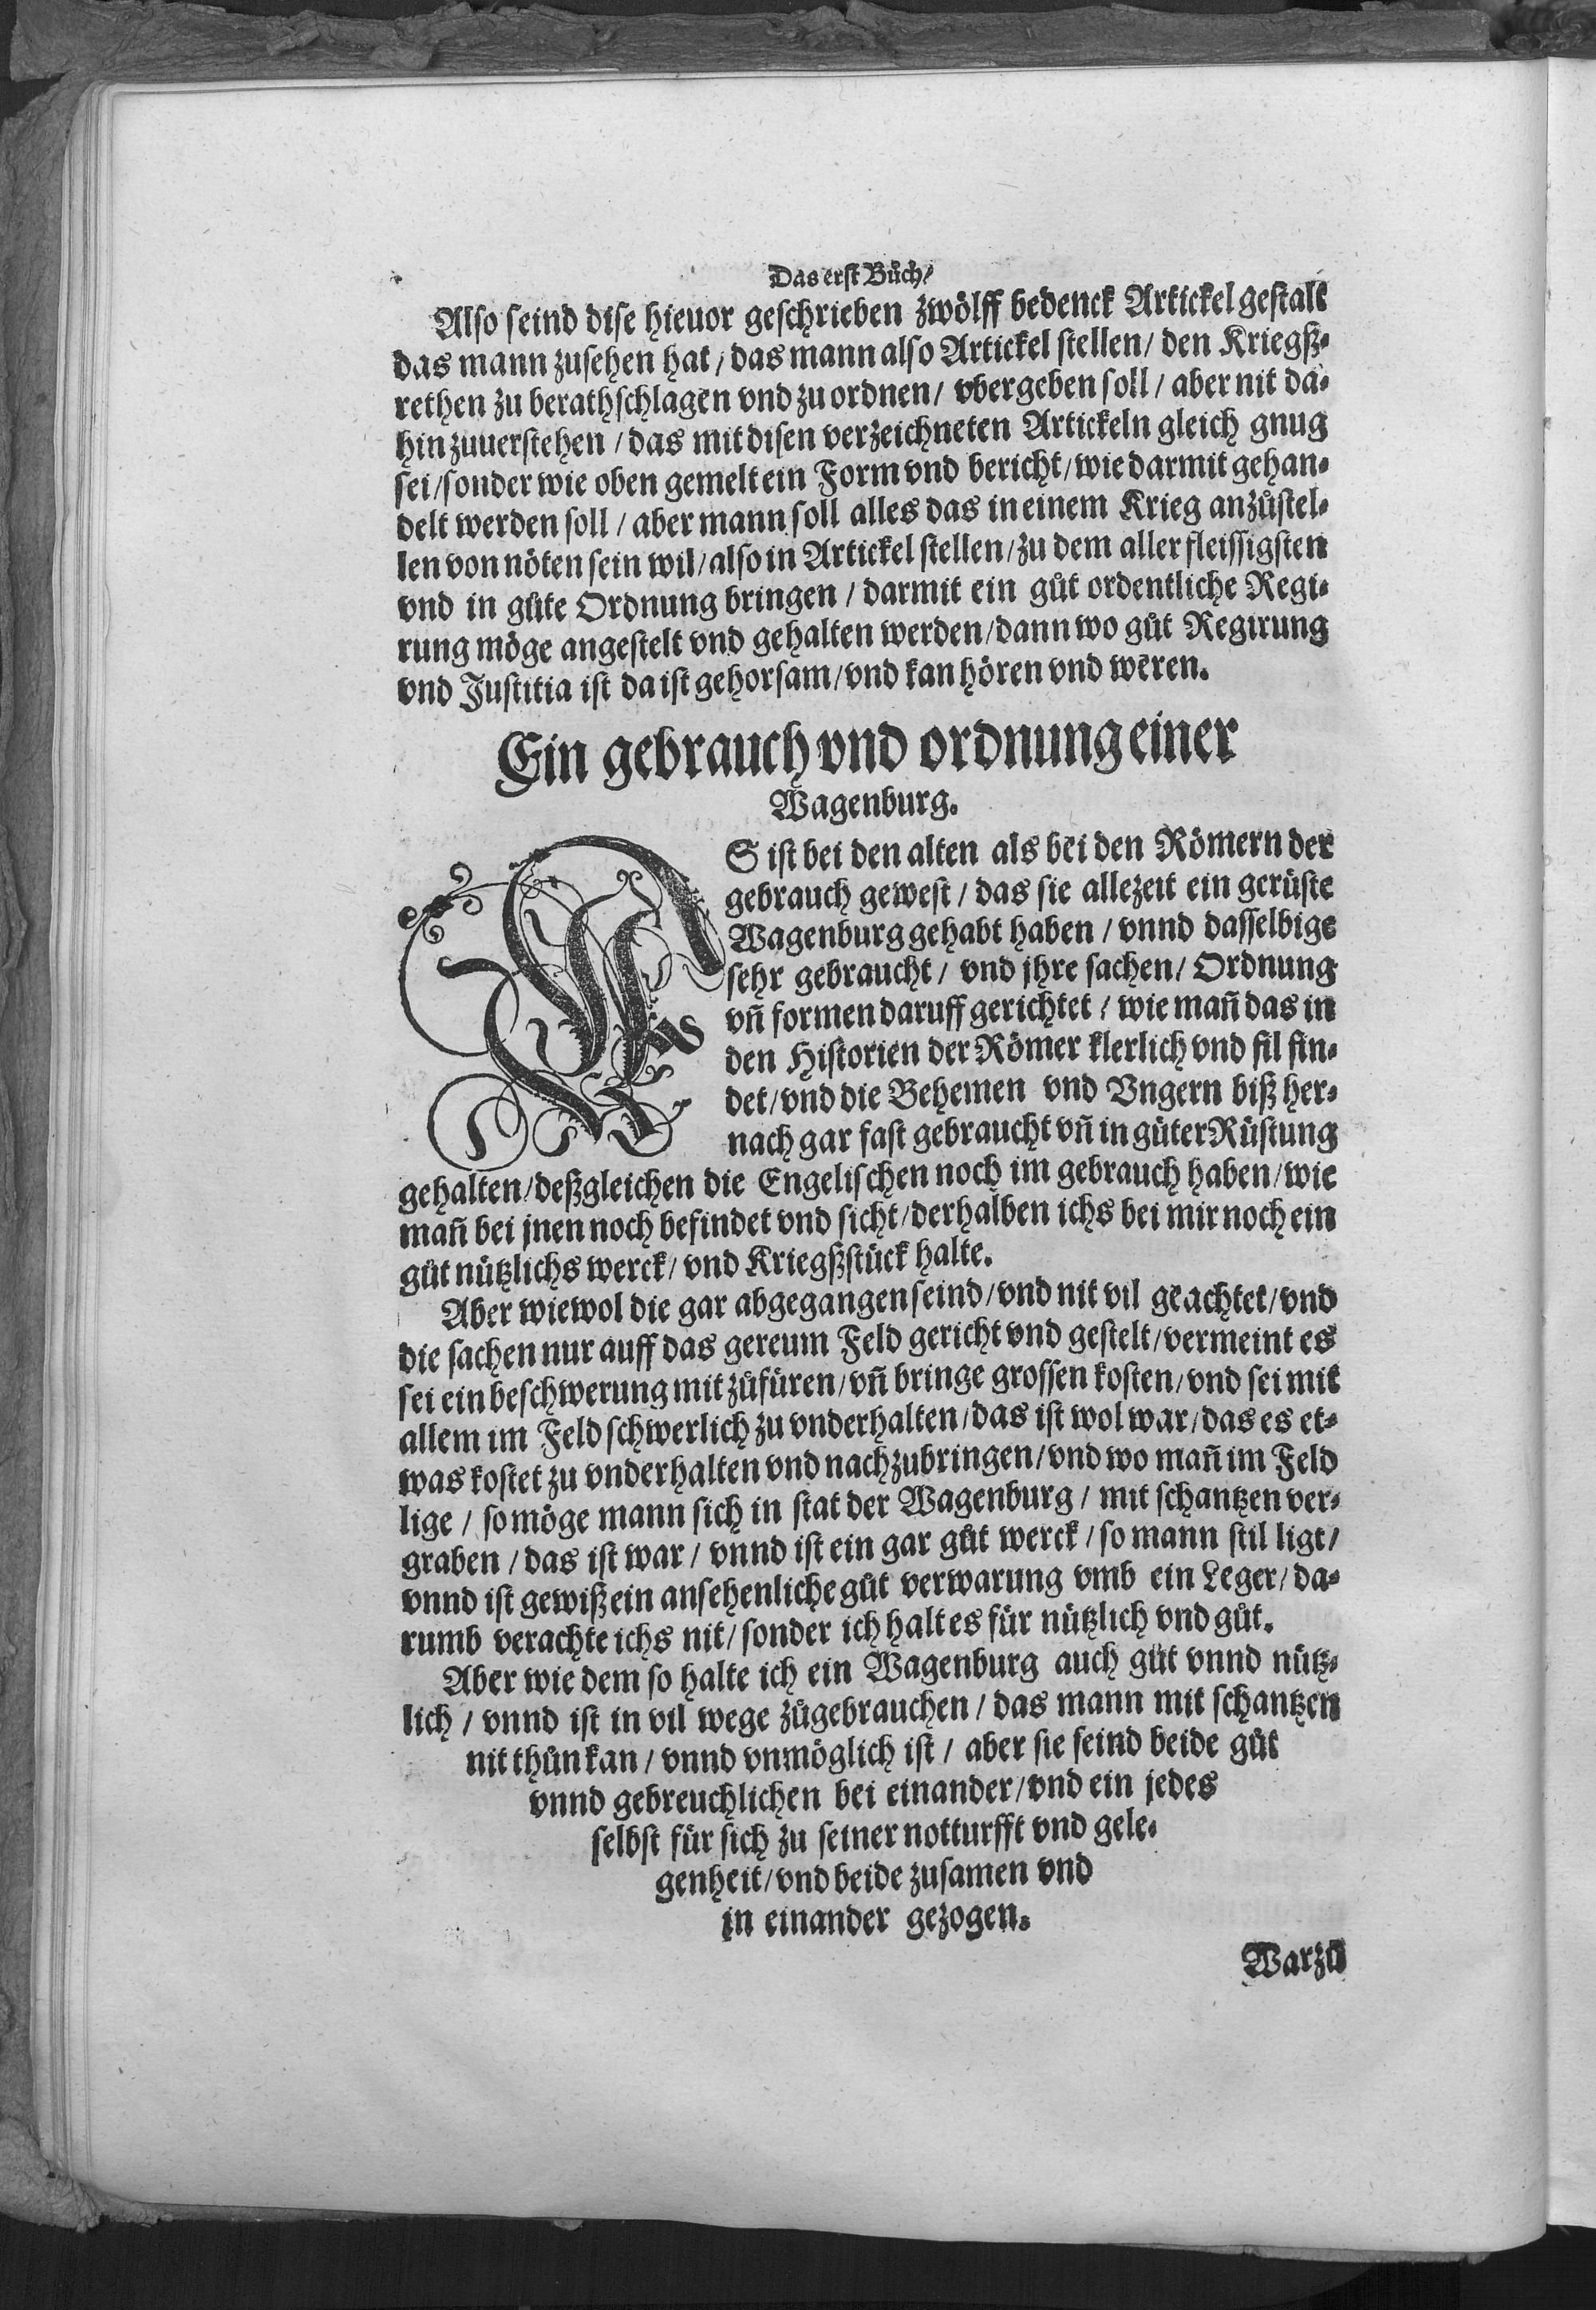 Das erst Bůch/
Also seind dise hieuor geschrieben zwölff bedenck Artickel gestalt
das mann zusehen hat / das mann also Artickel stellen / den Kriegß-
rethen zu berathschlagen vnd zu ordnen / vbergeben soll / aber nit da-
hin zuuerstehen / das mit disen verzeichneten Artickeln gleich gnug
sei / sonder wie oben gemelt ein Form vnd bericht / wie darmit gehan-
delt werden soll / aber mann soll alles das in einem Krieg anzůstel-
len von nöten sein wil / also in Artickel stellen / zu dem aller fleissigsten
vnd in gůte Ordnung bringen / darmit ein gůt ordentliche Regi-
rung möge angestelt vnd gehalten werden / dann wo gůt Regirung
vnd Justitia ist da ist gehorsam / vnd kan hören vnd weren.
Ein gebrauch vnd ordnung einer
Wagenburg.
ES ist bei den alten als bei den Römern der
gebrauch gewest / das sie allezeit ein gerüste
Wagenburg gehabt haben / vnnd dasselbige
sehr gebraucht / vnd jhre sachen / Ordnung
vñ formen daruff gerichtet / wie mañ das in
den Historien der Römer klerlich vnd fil fin-
det / vnd die Behemen vnd Vngern biß her-
nach gar fast gebraucht vñ in gůter Rüstung
gehalten / deßgleichen die Engelischen noch im gebrauch haben / wie
mañ bei jnen noch befindet vnd sicht / derhalben ichs bei mir noch ein
gůt nützlichs werck / vnd Kriegßstück halte.
Aber wiewol die gar abgegangen seind / vnd nit vil geachtet / vnd
die sachen nur auff das gereum Feld gericht vnd gestelt / vermeint es
sei ein beschwerung mit zůfüren / vñ bringe grossen kosten / vnd sei mit
allem im Feld schwerlich zu vnderhalten / das ist wol war / das es et-
was kostet zu vnderhalten vnd nachzubringen / vnd wo mañ im Feld
lige / so möge mann sich in stat der Wagenburg / mit schantzen ver-
graben / das ist war / vnnd ist ein gar gůt werck / so mann stil ligt /
vnnd ist gewiß ein ansehenliche gůt verwarung vmb ein Leger / da-
rumb verachte ichs nit / sonder ich halt es für nützlich vnd gůt.
Aber wie dem so halte ich ein Wagenburg auch gůt vnnd nütz-
lich / vnnd ist in vil wege zůgebrauchen / das mann mit schantzen
nit thůn kan / vnnd vnmöglich ist / aber sie seind beide gůt
vnnd gebreuchlichen bei einander / vnd ein jedes
selbst für sich zu seiner notturfft vnd gele-
genheit / vnd beide zusamen vnd
in einander gezogen.
Warzů